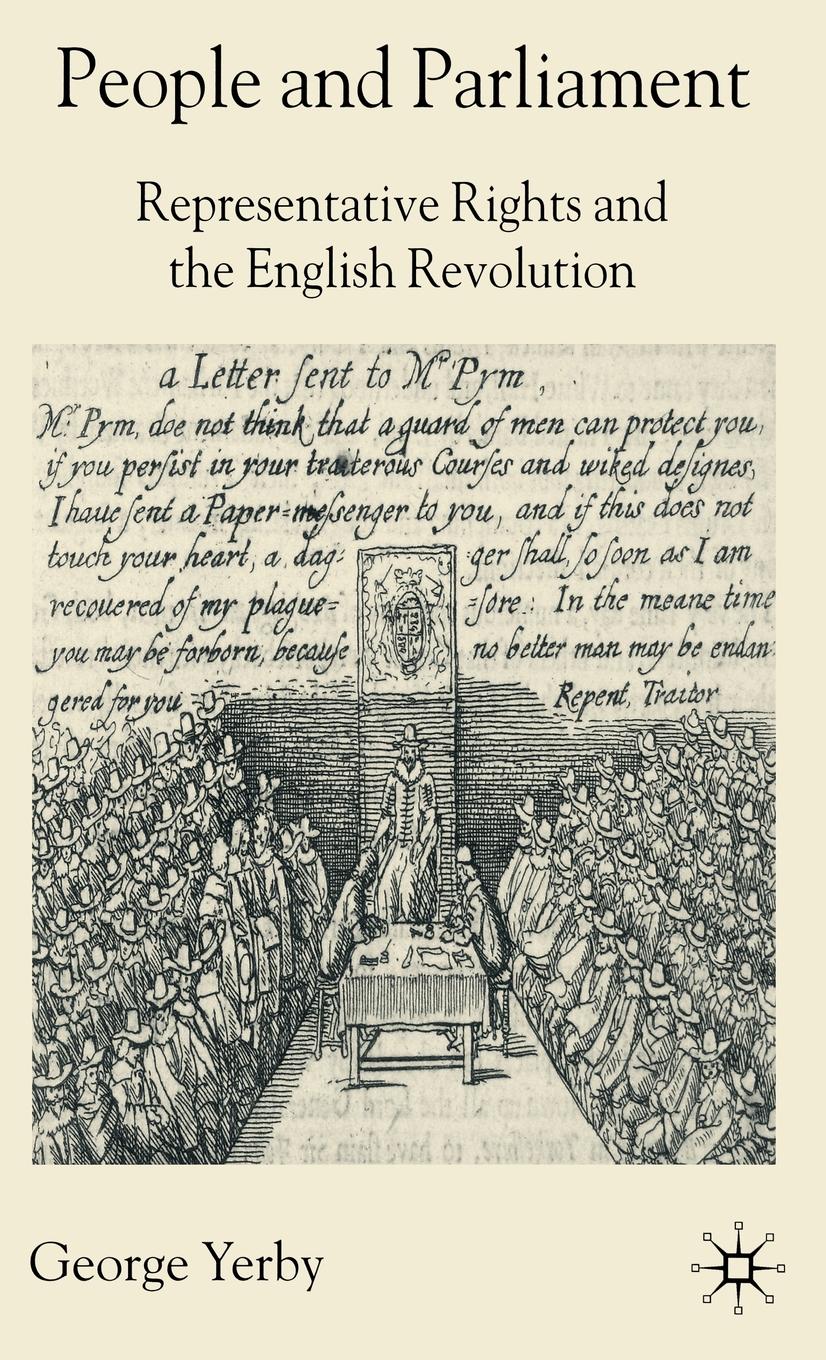 People and Parliament
Representative Rights and
the English Revolution
a Letter ſent to Mr Pym,
Mr Pym, doe not think that a guard of men can protect you,
if you perſiſt in your traiterous Courſes and wiked deſignes,
I haue ſent a Paper=meſſenger to you, and if this does not
touch your heart, a dag= ger ſhall, ſo ſoon as I am
recouered of my plague= =ſore: In the meane time
you may be forborn, becauſe no better man may be endan=
gered for you Repent, Traitor
George Yerby